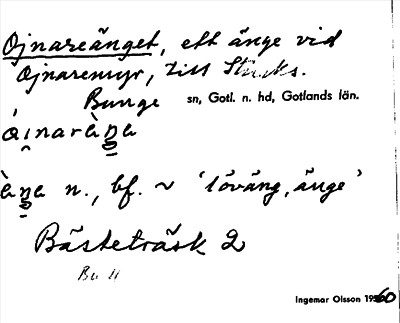 Ojnareänget, ett änge vid
Ojnaremyr, till Stucks.
Bunge sn, Gotl. n. hd, Gotlands län.
n., bf. ~ 'löväng, änge'
Bästeträsk 2
Ingemar Olsson 1960